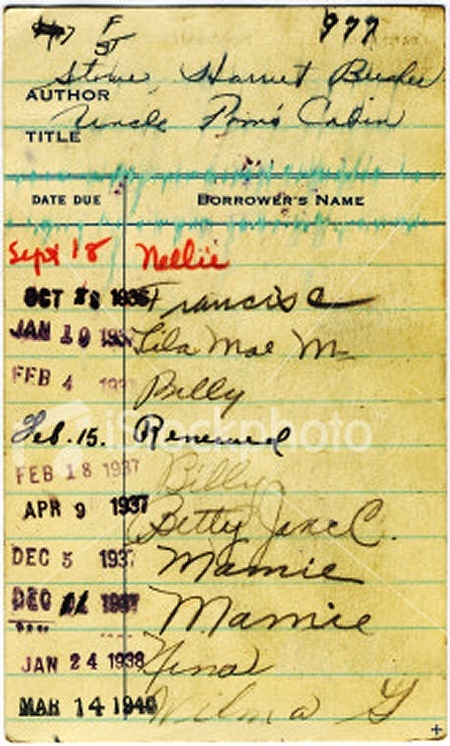 F
ST 977
Stowe, Harriet Beecher
AUTHOR
Uncle Tom's Cabin
TITLE
DATE DUE BORROWER'S NAME
Sept 18 Nellie
OCT 28 1936 Francis C
JAN 19 1937 Lila Mae Mc
FEB 4 1937 Billy
Feb. 15. Renewed
iStockphoto
FEB 18 1937 Billy
APR 9 1937 Betty Jane C.
DEC 5 1937 Mamie
DEC 1937 Mamie
JAN 24 1938 Nina
MAR 14 1940 Wilma G